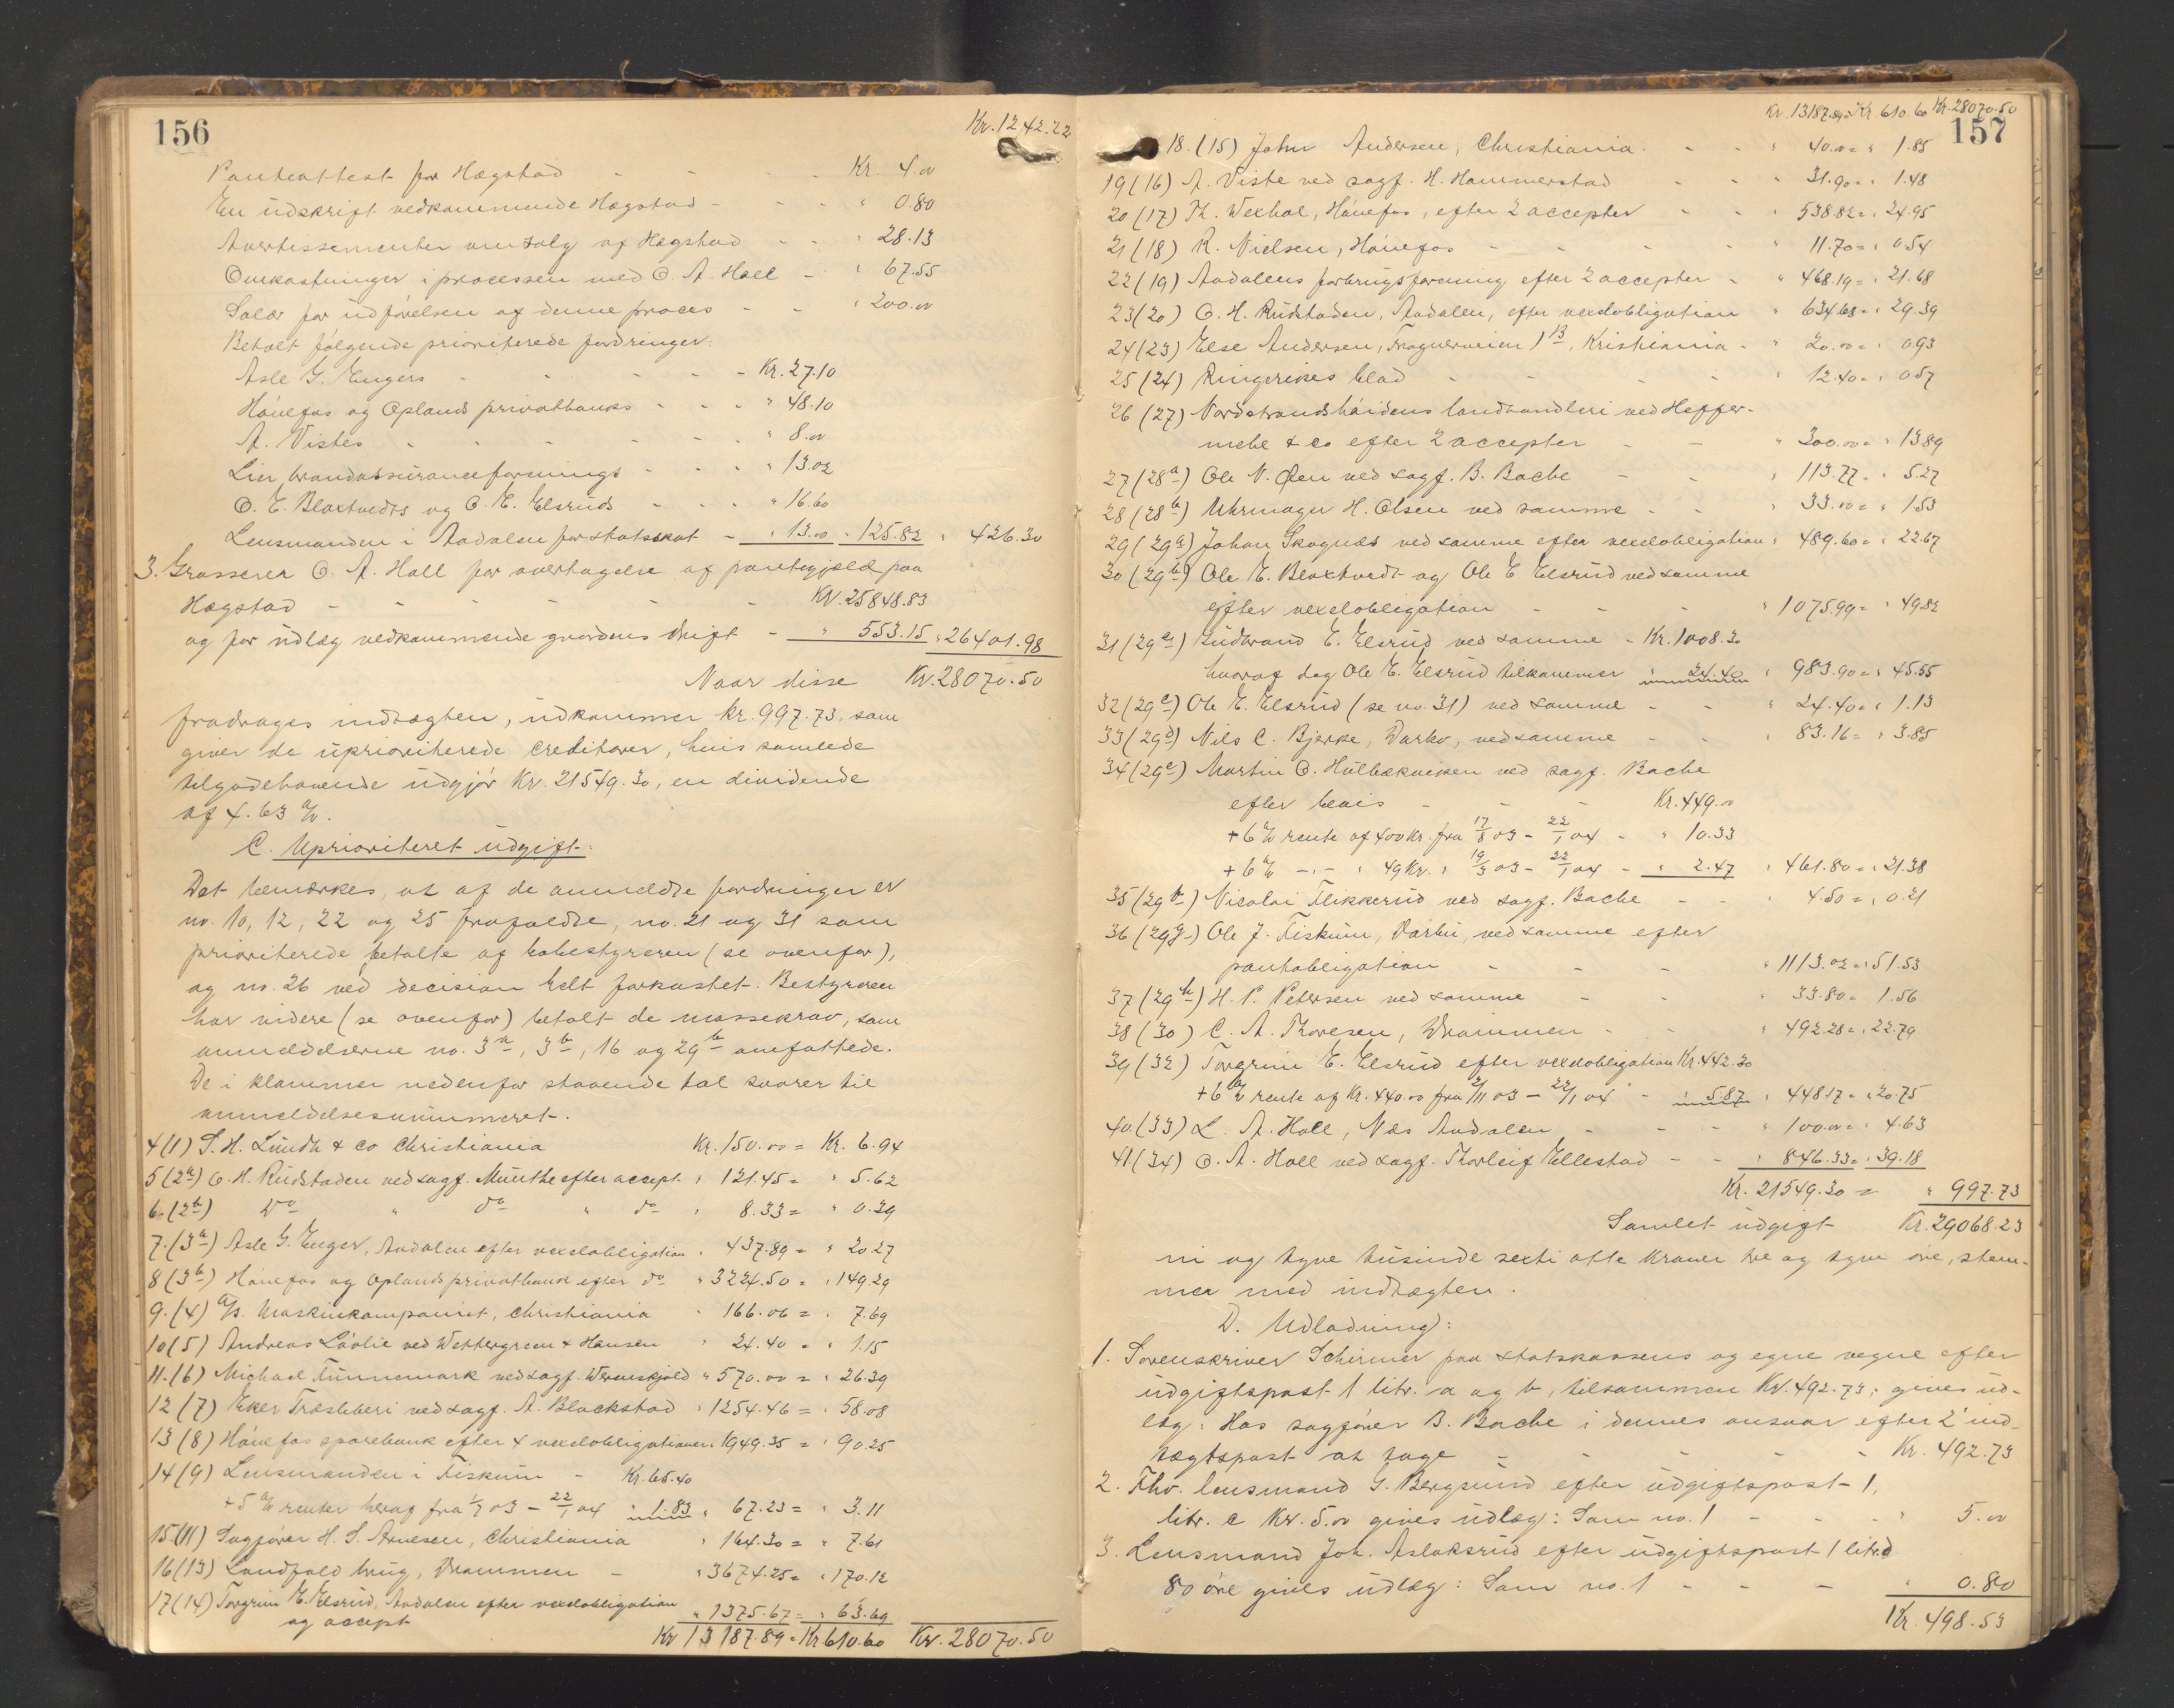 156
Kr. 1242.22
Panteattest for Hægstad - - - Kr. 4.00
En udskrift vedkommende Hægstad - - " 0.80
Avertissementer om salg af Hægstad - - " 28.13
Omkostninger i processen med O. A. Hall - " 67.55
Salær for udførelsen af denne proces - - " 200.00
Betalt følgende prioriterede fordringer:
Asle G. Engers - - - Kr. 27.10
Hønefos og Oplands privatbanks - - " 48.10
A. Vistes - - - " 8.00
Lier brandassuranceforenings - - " 13.02
O. E. Bloxtvedts og O. E. Elsruds - - " 16.60
Lensmanden i Aadalen for statsskat - " 13.00 " 125.82 " 426.30
3. Grosserer O. A. Hall for overtagelse af pantegjæld paa
Hægstad - - - - Kr. 25848.83
og for udlæg vedkommende gaardens drift - " 553.15 " 26401.98
Naar disse Kr. 28070.50
fradrages indtægten, udkommer kr. 997.73, som
giver de uprioriterede creditorer, hvis samlede
tilgodehavende udgjør Kr. 21549.30, en dividende
af 4.63 %.
C. Uprioriteret udgift:
Det bemærkes, at af de anmeldte fordringer er
no. 10, 12, 22 og 25 frafaldte, no. 21 og 31 som
prioriterede betalte af bobestyreren (se ovenfor),
og no. 26 ved decision helt forkastet. Bestyreren
har videre (se ovenfor) betalt de massekrav, som
anmeldelserne no. 3a, 3b, 16 og 29b omfattede.
De i klammer nedenfor staaende tal svarer til
anmeldelsesnummeret.
4 (1) S. H. Lundh & co Christiania Kr. 150.00 = Kr. 6.94
5 (2a) O. H. Rudstaden ved sagf. Munthe efter accept " 121.45 = " 5.62
6 (2b) Do " do " do " 8.33 = " 0.39
7. (3a) Asle G. Enger, Aadalen efter vexelobligation " 437.89 = " 20.27
8 (3b) Hønefos og Oplands privatbank efter do " 3224.50 = " 149.29
9. (4) A/s. Maskinkompaniet, Christiania " 166.06 = " 7.69
10 (5) Andreas Løvlie ved Wettergreen & Hansen " 24.40 = " 1.15
11. (6) Michael Tunnemark ved sagf. Werenskjold " 570.00 = " 26.39
12 (7) Eker Træsliberi ved sagf. A. Blackstad " 1254.46 = " 58.08
13 (8) Hønefos sparebank efter 4 vexelobligationer " 1949.35 = " 90.25
14 (9) Lensmanden i Fiskum - Kr. 65.40
+ 5 % renter heraf fra 1/7 03 - 22/1 04 " 1.83 " 67.23 = " 3.11
15 (11) Sagfører H. S. Arnesen, Christiania " 164.30 = " 7.61
16 (13) Landfald brug, Drammen - " 3674.25 = " 170.12
17 (14) Torgrim E. Elsrud, Aadalen efter vexelobligation
og accept " 1375.67 = " 63.69
Kr 13187.89 = Kr 610.60 Kr. 28070.50
Kr. 13187.89 = Kr. 610.60 Kr. 28070.50
157
18. (15) John Andersen, Christiania - - " 40.00 = " 1.85
19 (16) A. Viste ved sagf. H. Hammerstad - - " 31.90 = " 1.48
20 (17) Th. Wexhal, Hønefos, efter 2 accepter - - " 538.82 = " 24.95
21 (18) R. Nielsen, Hønefos - - - " 11.70 = " 0.54
22 (19) Aadalens forbrugsforening efter 2 accepter - " 468.19 = " 21.68
23 (20) O. H. Rudstaden, Aadalen, efter vexelobligation " 634.68 = " 29.39
24 (23) Else Andersen, Frognerveien 1 B, Kristiania - " 20.00 = " 0.93
25 (24) Ringerikes blad - - - " 12.40 = " 0.57
26 (27) Nordstrandshøidens landhandleri ved Heffer-
mehl & co efter 2 accepter - - " 300.00 = " 13.89
27 (28a) Ole N. Øen ved sagf. B. Bache - - " 113.77 = " 5.27
28 (28b) Uhrmager H. Olsen ved samme - - " 33.00 = " 1.53
29 (29a) Johan Skognæs ved samme efter vexelobligation " 489.60 = " 22.67
30 (29b) Ole E. Bloxtvedt og Ole E Elsrud ved samme
efter vexelobligation - - - " 1075.99 = " 49.82
31 (29c) Gudbrand E. Elsrud ved samme - Kr. 1008.30
hvoraf dog Ole E. Elsrud tilkommer " 24.40 " 983.90 = " 45.55
32 (29c) Ole E. Elsrud (se no. 31) ved samme - - " 24.40 = " 1.13
33 (29d) Nils C. Bjerke, Darbo, ved samme - - " 83.16 = " 3.85
34 (29e) Martin O. Hulbakviken ved sagf. Bache
efter bevis - - - Kr. 449.00
+ 6 % rente af 400 kr. fra 17/8 03 - 22/1 04 - " 10.33
+ 6 % - " - " 49 Kr. " 19/3 03 - 22/1 04 - " 2.47 " 461.80 = " 21.38
35 (29f) Nicolai Flikkerud ved sagf. Bache - - " 4.50 = " 0.21
36 (29g) Ole J. Fiskum, Darbu, ved samme efter
pantobligation - - - " 1113.02 = " 51.53
37 (29h) H. P. Petersen ved samme - - " 33.80 = 1.56
38 (30) C. A. Thoresen, Drammen - - " 492.28 = " 22.79
39 (32) Torgrim E. Elsrud efter vexelobligation Kr. 442.30
+ 6 % rente af Kr. 440.00 fra 2/11 03 - 22/1 04 - " 5.87 " 448.17 = " 20.75
40. (33) L. A. Hall, Næs Aadalen - - - " 100.00 = " 4.63
41 (34) O. A. Hall ved sagf. Thorleif Ellestad - - " 846.33 = " 39.18
Kr. 21549.30 = " 997.73
Samlet udgift Kr. 29068.23
ni og tyve tusinde sexti otte kroner tre og tyve øre, stem-
mer med indtægten.
D. Udlodning:
1. Sorenskriver Schirmer paa statskassens og egne vegne efter
udgiftspost 1 litr. a og b, tilsammen Kr. 492.73; gives ud-
læg: Hos sagfører B. Bache i dennes ansvar efter 2' ind-
tægtspost at tage - - - Kr. 492.73
2. Fhv. lensmand G. Bergsund efter udgiftspost 1,
litr. c Kr. 5.00 gives udlæg: Som no. 1 - - - " 5.00
3. Lensmand Joh. Aslaksrud efter udgiftspost 1 litr. d
80 øre gives udlæg: Som no. 1 - - - " 0.80
Kr. 498.53